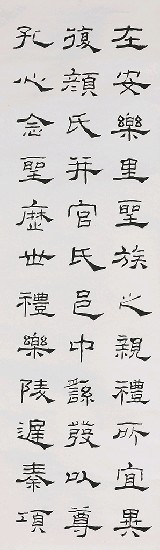 左安樂里聖族之親禮所宜異
復顏氏并官氏邑中繇發以尊
孔心念聖歷世禮樂陵遲秦項